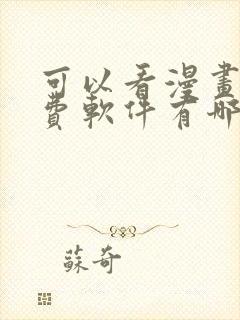 可以看漫畫
費軟件有哪
蘇奇